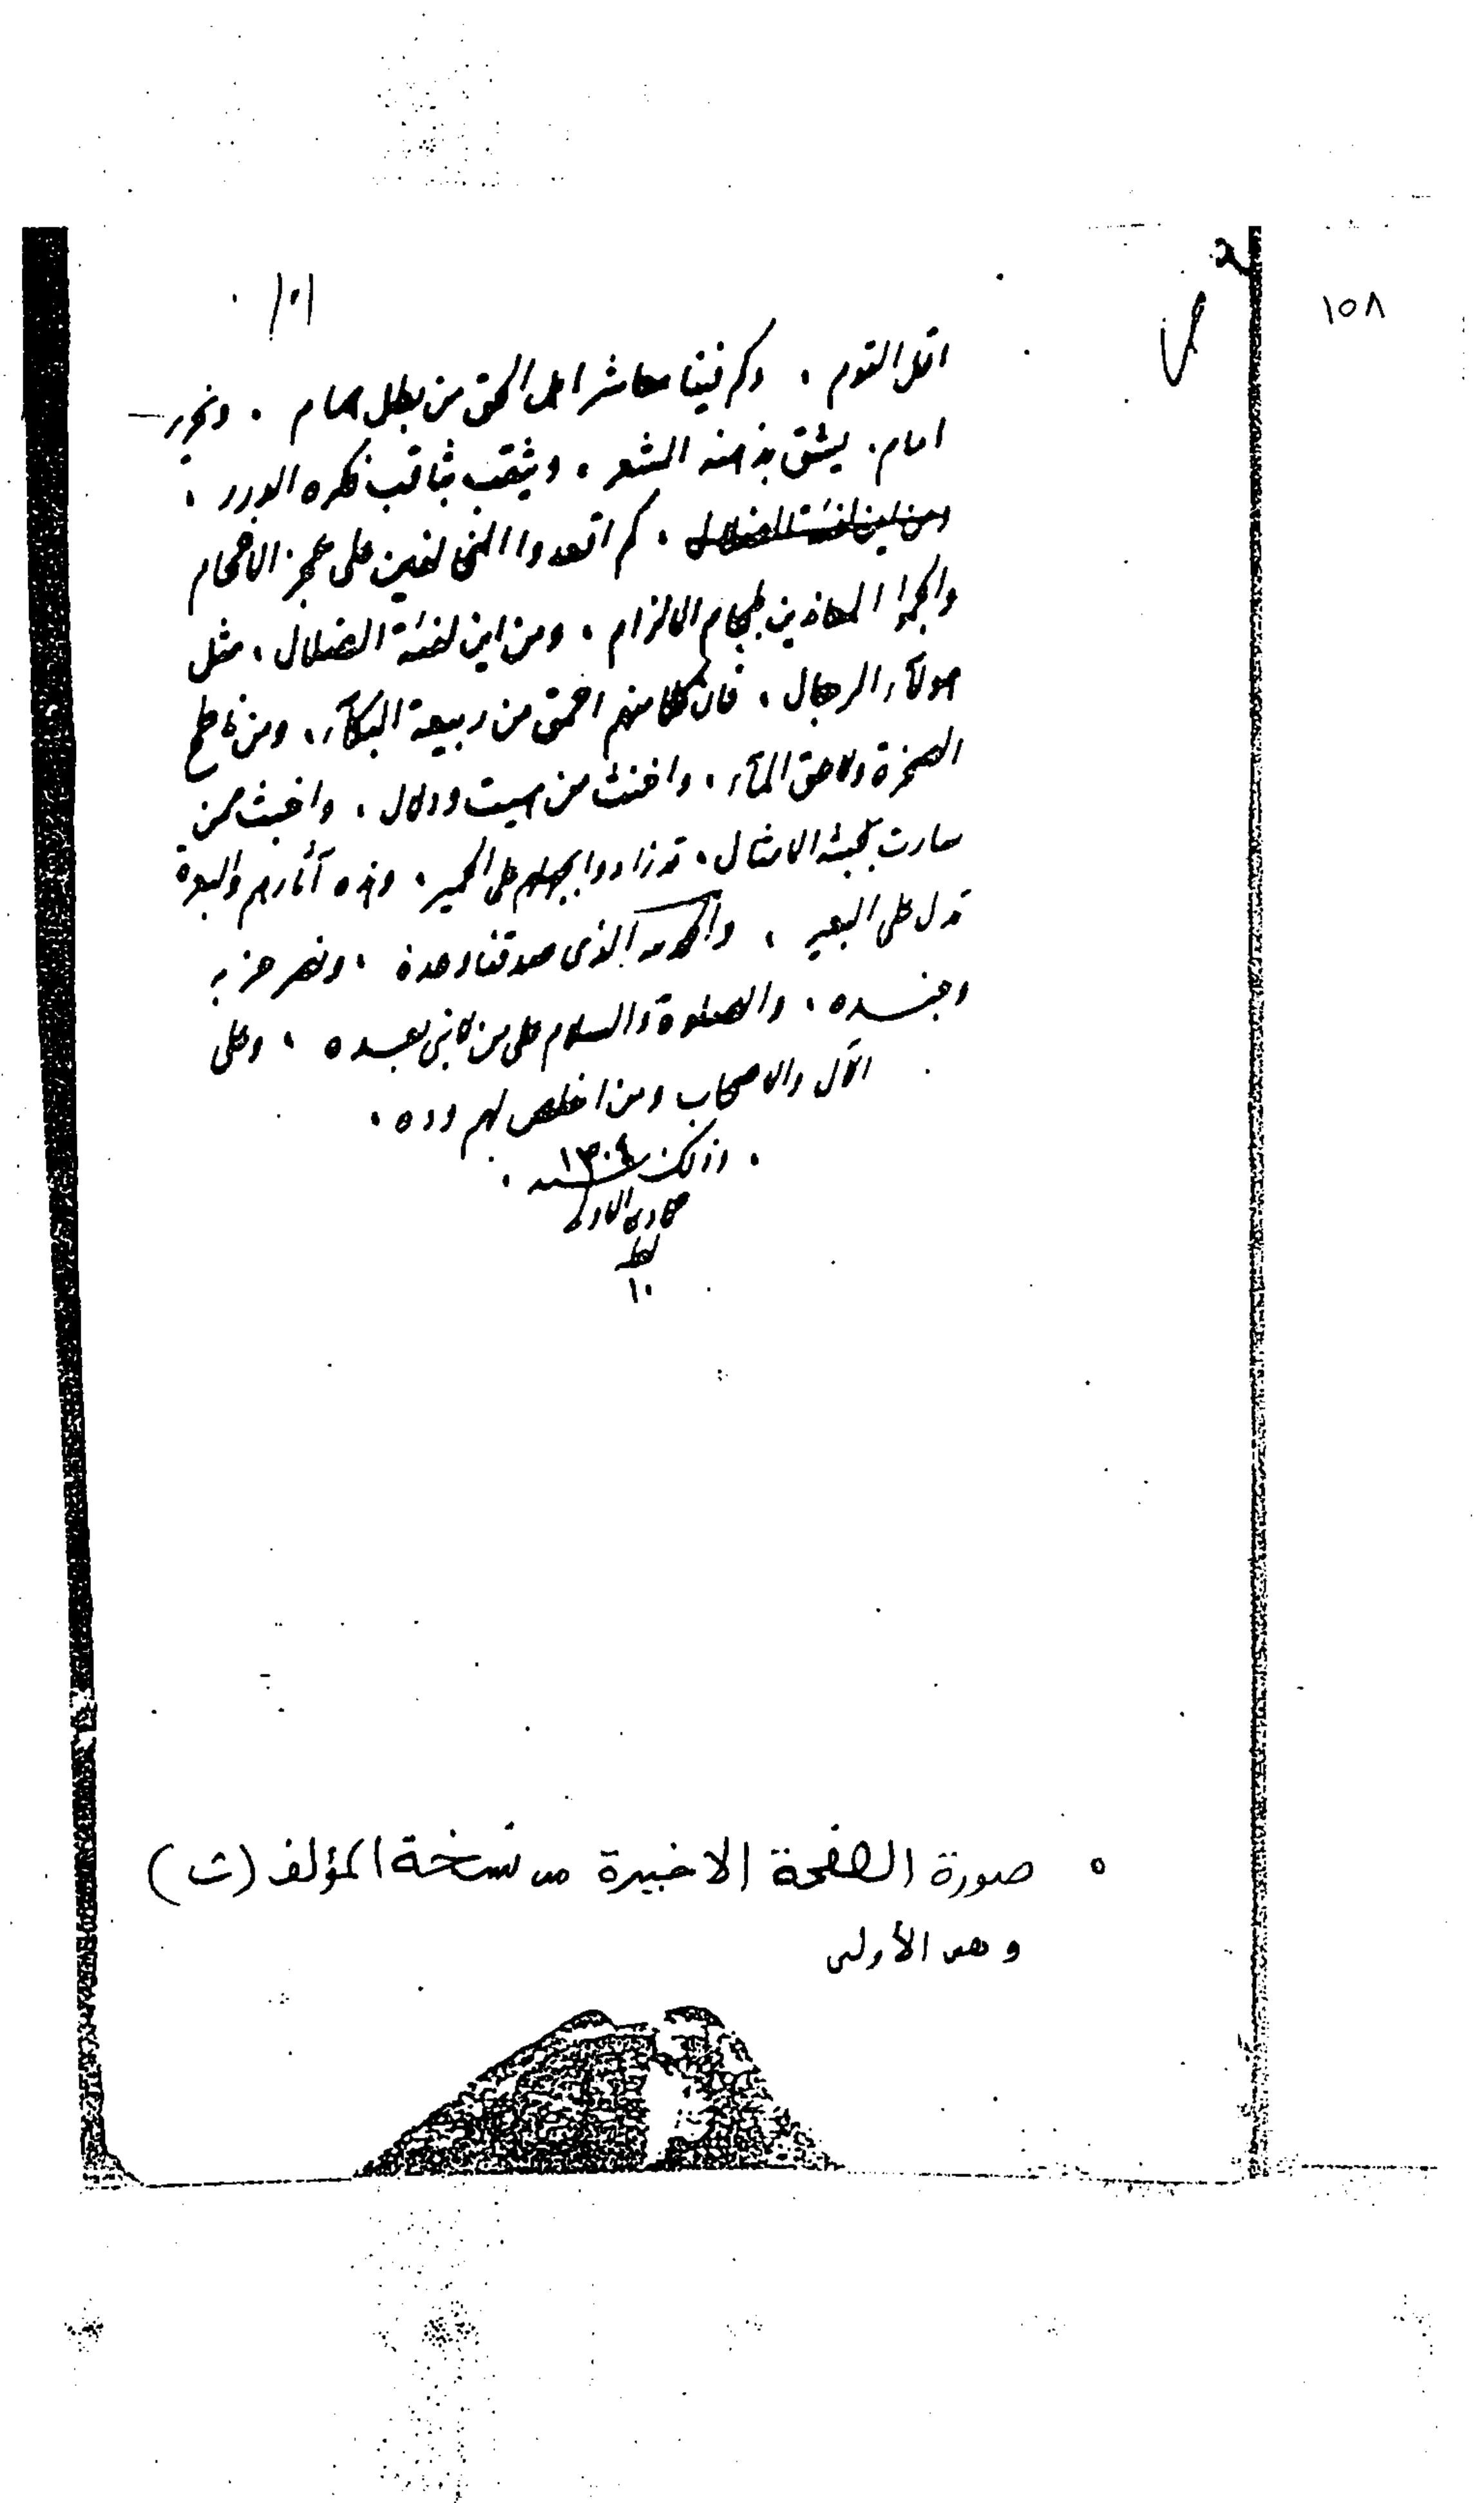 ١٥٨
اقل القوم ، وكم فينا معاشر اهل الحق من بطل همام . ونحرير
امام . يشق بذهنه الشعر ، ويثقب بثاقب فكره الدرر ،
ومن اين لفئة الضلال ، كم اقعدوا المخالفين على عجز الافحام
والجموا المعاندين بلجام الالزام ، ومن اين لفئة الضلال ، مثل
هولآء الرجال ، فان كلا منهم احمق من ربيعة البكآء ، ومن ناطح
الصخرة ولاعق المآء ، واخنث من هيت ودلال ، واخبث ممن
سارت بخبثه الامثال ، قد زادوا بجهلهم على الحمير ، وهذه آثارهم والبعرة
تدل على البعير ، والحمد لله الذى صدقنا وعده ، ونصر حزبه
وجنده ، والصلوة والسلام على من لا نبى بعده ، وعلى
الآل والاصحاب ومن اخلص لهم وده ،
. وذلك سنه ١٣٠٤ .
١٠
• صورة الصفحة الاخيرة من نسخة المؤلف (ث)
وهى الأولى